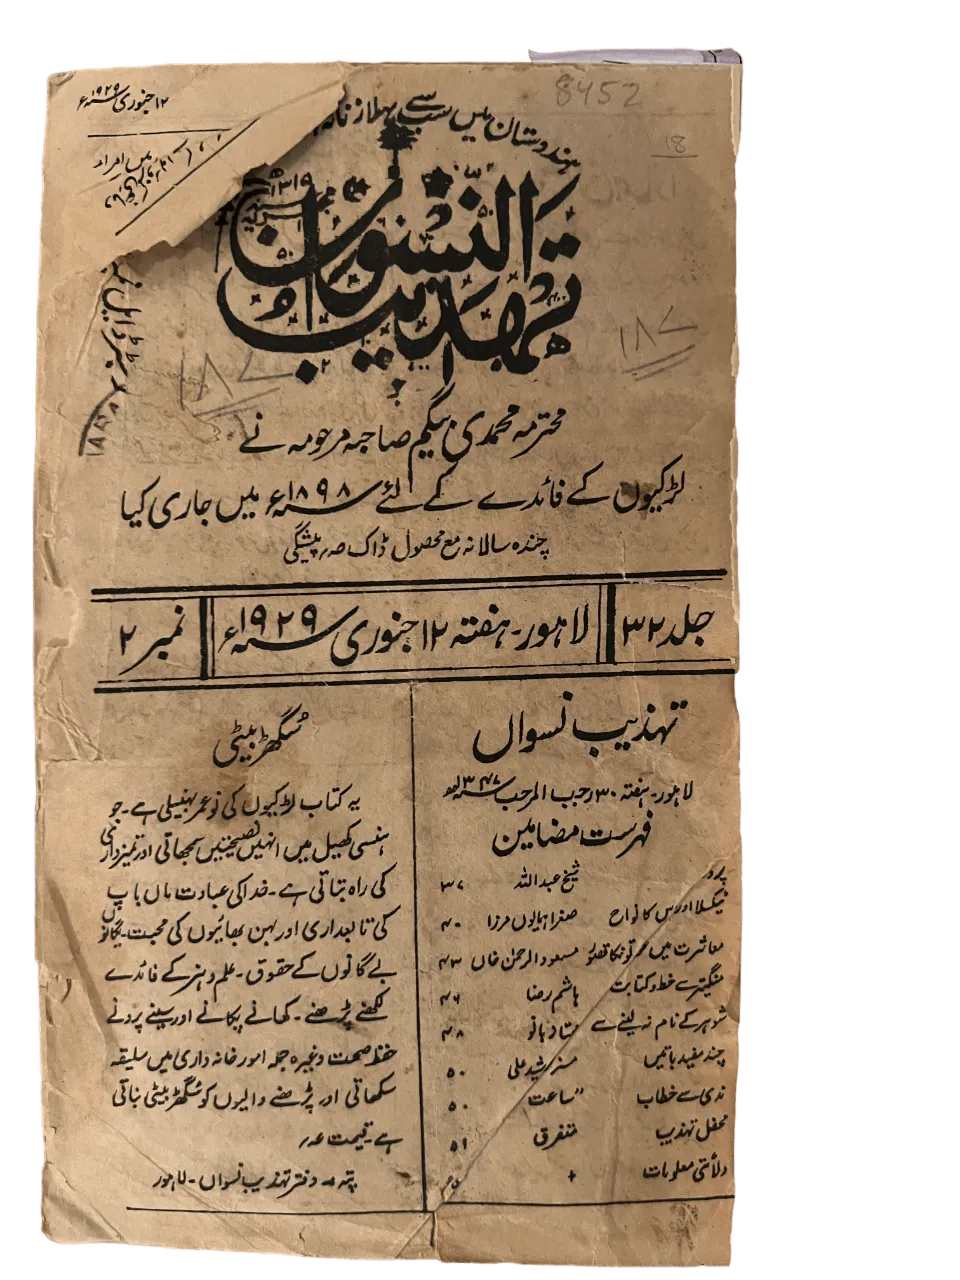 ۱۲ جنوری ۱۹۲۹ء
8452
18
ہندوستان میں سب سے پہلا زنانہ
۱۳۱۵
تہذیب النسواں
۱۸۷
۱۸۷
محترمہ محمدی بیگم صاحبہ مرحومہ نے
لڑکیوں کے فائدے کے لئے سنہ ۱۸۹۸ء میں جاری کیا
چندہ سالانہ مع محصول ڈاک صہ پیشگی
جلد ۳۲
لاہور۔ ہفتہ ۱۲ جنوری سنہ ۱۹۲۹ء
نمبر ۲
تہذیب نسواں
لاہور۔ ہفتہ ۳۰ رجب المرجب سنہ ۱۳۴۷ھ
فہرست مضامین
شیخ عبداللہ ۳۷
ٹیکسلا اور اس کا نواح صغرا ہمایوں مرزا ۴۰
معاشرت میں مسعود الرحمٰن خاں ۴۳
منگیتر سے خط و کتابت ہاشم رضا ۴۶
شوہر کے نام نہ لینے سے بانو ۴۸
چند مفید باتیں مسز رشید علی ۵۰
ندی سے خطاب ساعت ۵۰
محفل تہذیب متفرق ۵۱
ولائتی معلومات
سگھڑ بیٹی
یہ کتاب لڑکیوں کی نو عمر سہیلی ہے۔ جو
ہنسی کھیل میں انہیں نصیحتیں سمجھاتی اور تمیزداری
کی راہ بتاتی ہے۔ خدا کی عبادت ماں باپ
کی تابعداری اور بہن بھائیوں کی محبت۔ یگانوں
بے گانوں کے حقوق۔ علم و ہنر کے فائدے
لکھنے پڑھنے۔ کھانے پکانے اور سینے پرونے
حفظ صحت وغیرہ جملہ امور خانہ داری میں سلیقہ
سکھاتی اور پڑھنے والیوں کو سگھڑ بیٹی بناتی
ہے۔ قیمت عہ
پتہ دفتر تہذیب نسواں۔ لاہور